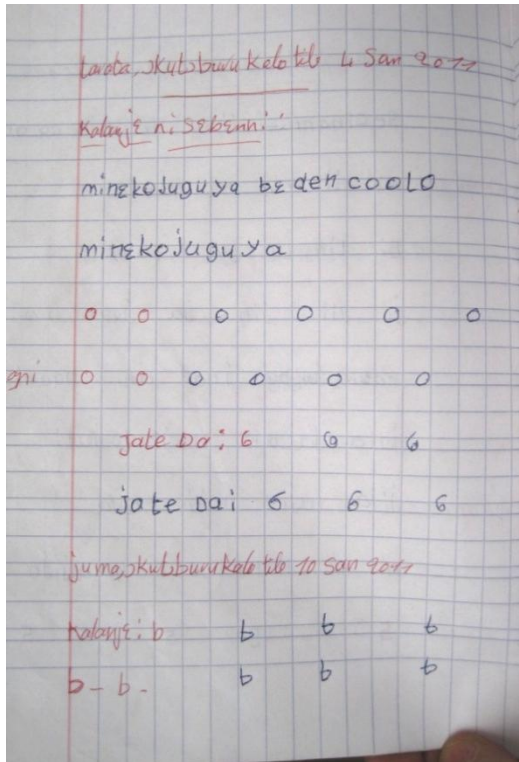 tarata, ɔkutɔburu kalo tile 4 San 2011
Kalanjɛ ni sɛbɛnni:
minɛkojuguya bɛ den coolo
minɛkojuguya
o o o o o o
eni o o o o o o
Jate Da: 6 6 6
jate Da: 6 6 6
juma, ɔkutɔburu kalo tile 10 San 2011
Kalanjɛ: b b b b
b - b - b b b